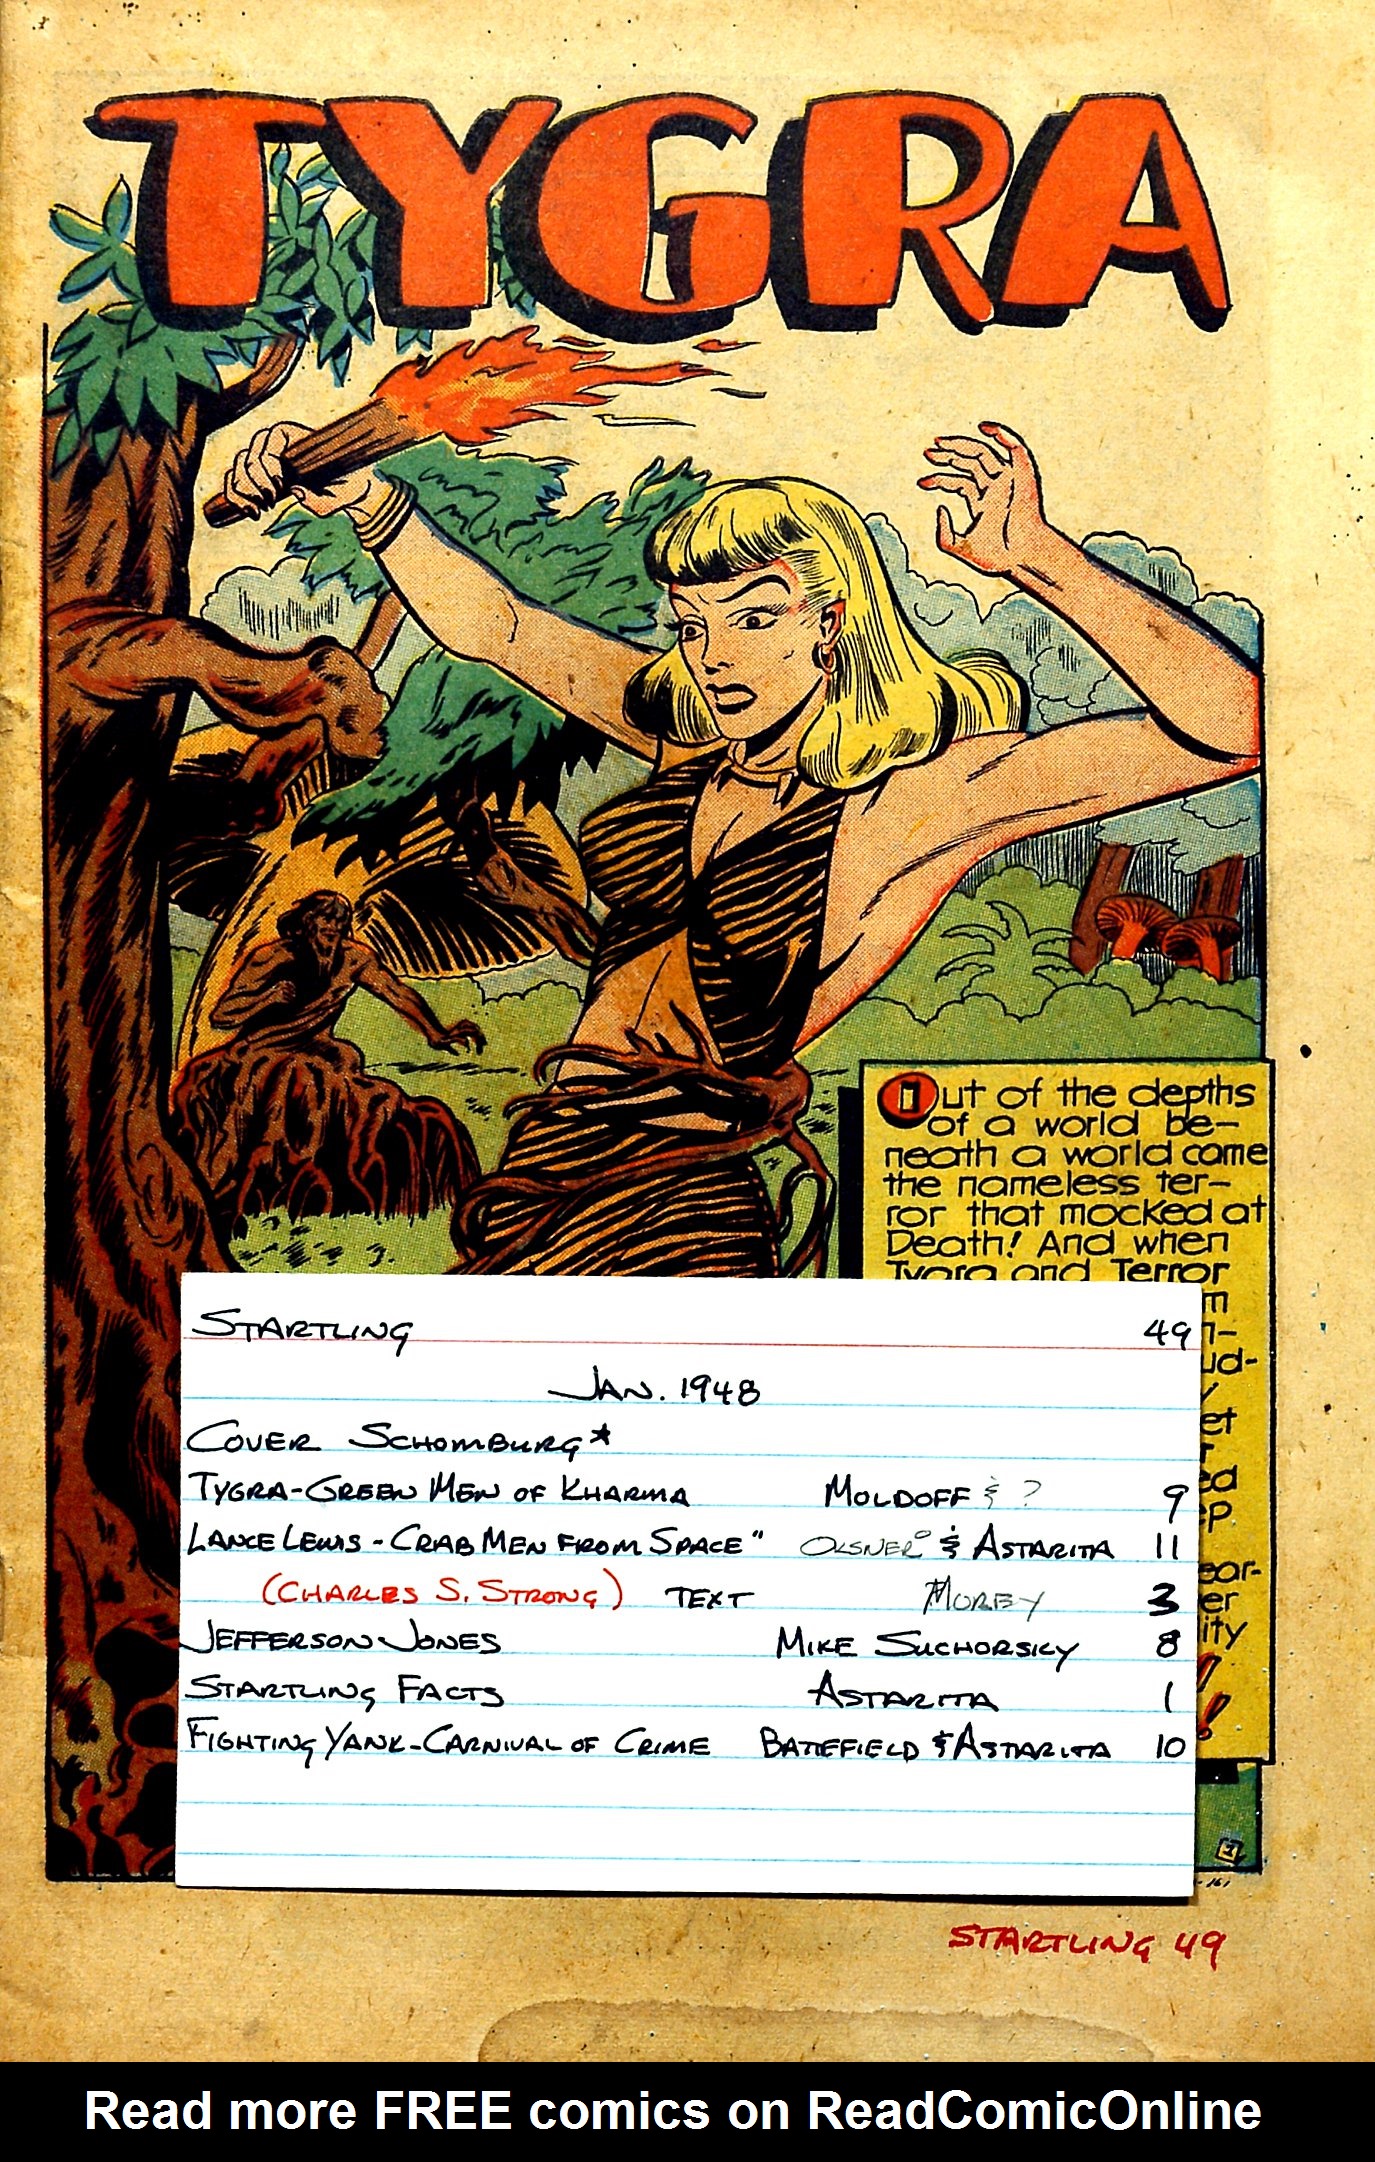 TYGRA
Out of the depths
of a world be-
neath a world came
the nameless ter-
ror that mocked at
Death! And when
Tygra and Terror
STARTLING 49
JAN. 1948
COVER SCHOMBURG*
TYGRA-GREEN MEN OF KHARMA MOLDOFF & ? 9
LANCE LEWIS - CRAB MEN FROM SPACE" OKSNER & ASTARITA 11
(CHARLES S. STRONG) TEXT MOREY 3
JEFFERSON JONES MIKE SUCHORSKY 8
STARTLING FACTS ASTARITA 1
FIGHTING YANK-CARNIVAL OF CRIME BATTEFIELD & ASTARITA 10
1
STARTLING 49
Read more FREE comics on ReadComicOnline